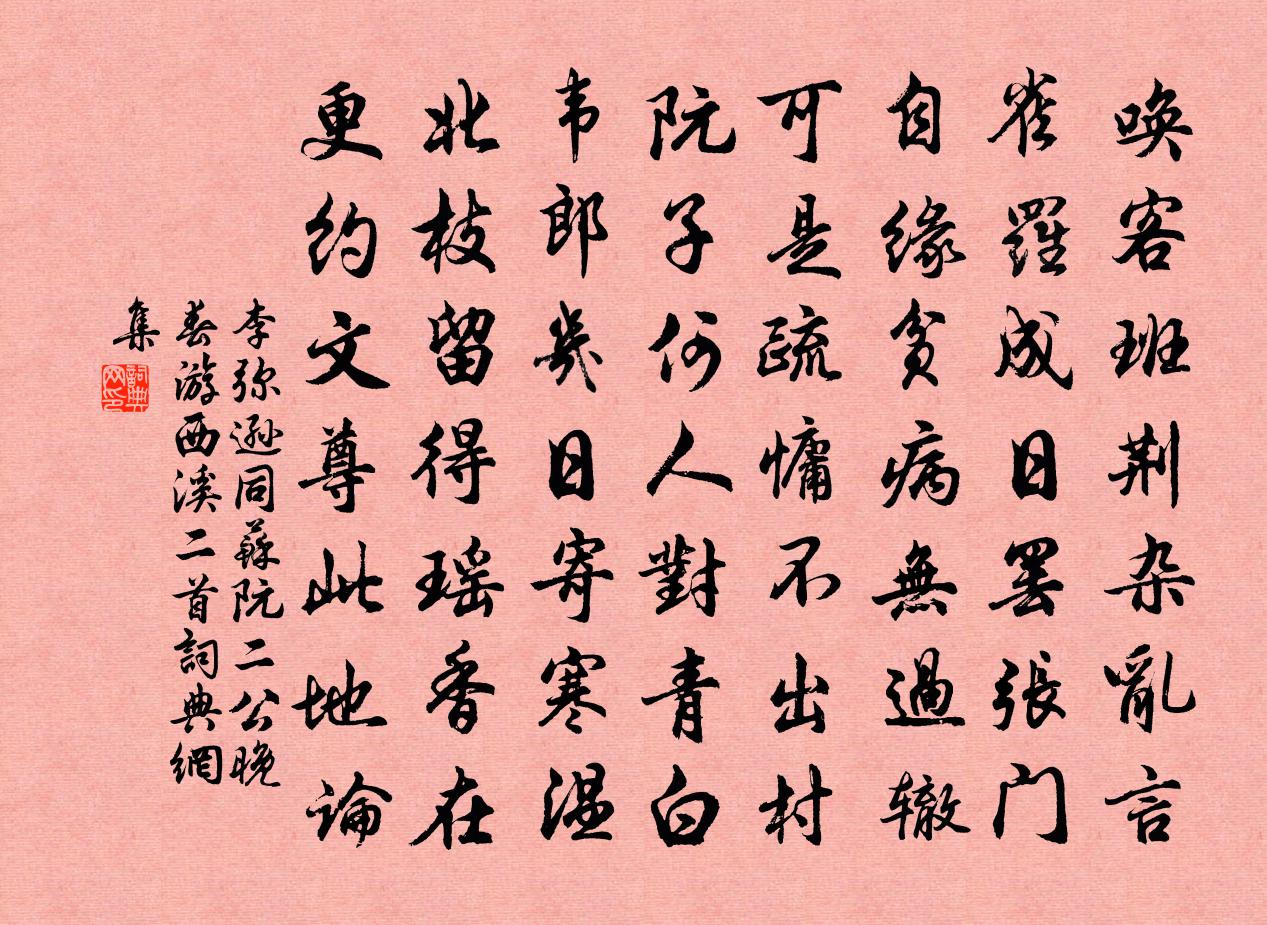 唤客班荆杂亂言
雀羅成日罢張门
自缘贫病無過辙
可是疏慵不出村
阮子何人對青白
韦郎幾日寄寒温
北枝留得瑶香在
更约文尊此地论
李弥遜同蘇阮二公晚
春游西溪二首詞典網
集
詞典網印